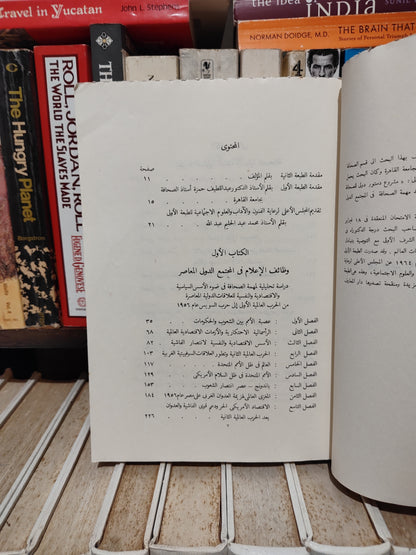 Travel in Yucatan
John L. Stephens
the idea
INDIA
SUNIL
NORMAN DOIDGE, M.D.
THE BRAIN THAT
Stories of Personal Triumph
4
The Hungry Planet
Bergstrom
ROLL, JORDAN, ROLL
THE WORLD THE SLAVES MADE
EUGENE D. GENOVESE
THE
المحتوى
صفحة
مقدمة الطبعة الثانية بقلم المؤلف . . . . . . ١١
مقدمة الطبعة الأولى بقلم الأستاذ الدكتور عبد اللطيف حمزة أستاذ الصحافة
بجامعة القاهرة . . . . . ١٥
تقديم المجلس الأعلى لرعاية الفنون والآداب والعلوم الاجتماعية للطبعة الأولى
بقلم الأستاذ محمد عبد الحليم عبد الله . . . ٢١
الكتاب الأول
وظائف الإعلام فى المجتمع الدولى المعاصر
دراسة تحليلية لمهمة الصحافة فى ضوء الأسس السياسية
والاقتصادية والنفسية للعلاقات الدولية المعاصرة
من الحرب العالمية الأولى إلى حرب السويس عام ١٩٥٦
الفصل الأول : عصبة الأمم بين الشعوب والحكومات . . . ٣٥
الفصل الثانى : الرأسمالية الاحتكارية والأزمات الاقتصادية العالمية ٦٧
الفصل الثالث : الأسس الاقتصادية والنفسية لانتصار الفاشية . ٨٢
الفصل الرابع : الحرب العالمية الثانية وتطور العلاقات السوفيتية الغربية ١٠٣
الفصل الخامس : العالم فى ظل الأمم المتحدة . . . . ١١٧
الفصل السادس : الأمم المتحدة فى ظل السلام الأمريكى . . ١٢٩
الفصل السابع : باندونج . عصر انتصار الشعوب . . . ١٥٣
الفصل الثامن : المغزى العالمى لهزيمة العدوان الغربى على مصر عام ١٩٥٦ ١٨٤
الفصل التاسع : الاقتصاد الأمريكى الحر ودعم قوى الفاشية والعدوان
بعد الحرب العالمية الثانية . . . . ٢٢٦
٧
بهذا البحث الى قسم الصحافة
جامعة القاهرة وكان البحث يعنى
مشروع دستور دولى للصحافة
مهمة الصحافة فى المجتمع